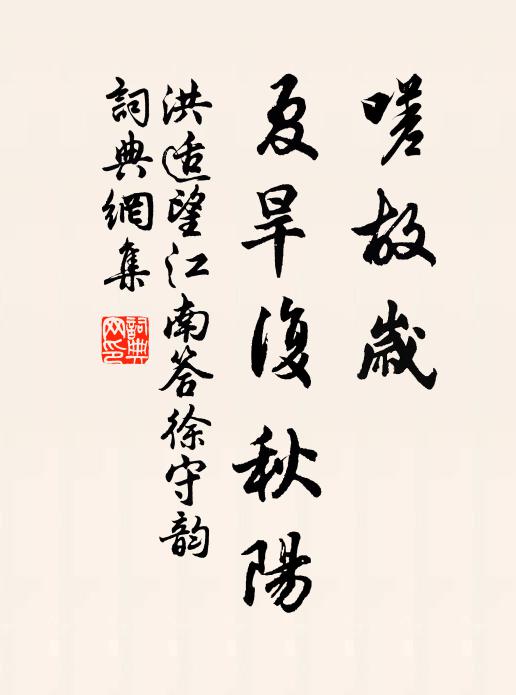 嗟故歲
夏旱復秋陽
洪适望江南答徐守韵
詞典網集
詞典網印